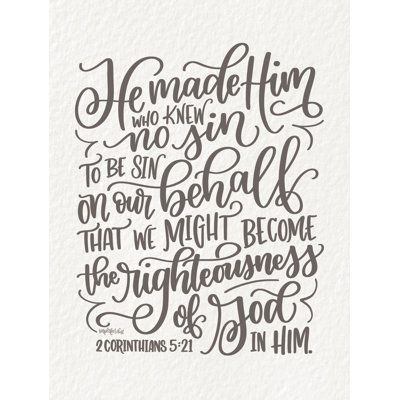 He made Him
WHO KNEW
no sin
TO BE SIN
on our behalf
THAT WE MIGHT BECOME
the righteousness
of God
IN HIM.
2 CORINTHIANS 5:21